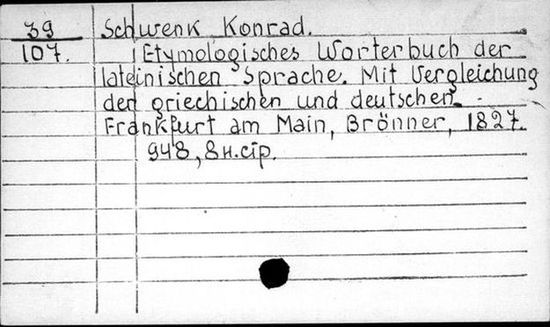 39 Schwenk Konrad.
107. Etymologisches Wörterbuch der
lateinischen Sprache. Mit Vergleichung
der griechischen und deutschen.
Frankfurt am Main, Brönner, 1827.
948, 8 н. стр.